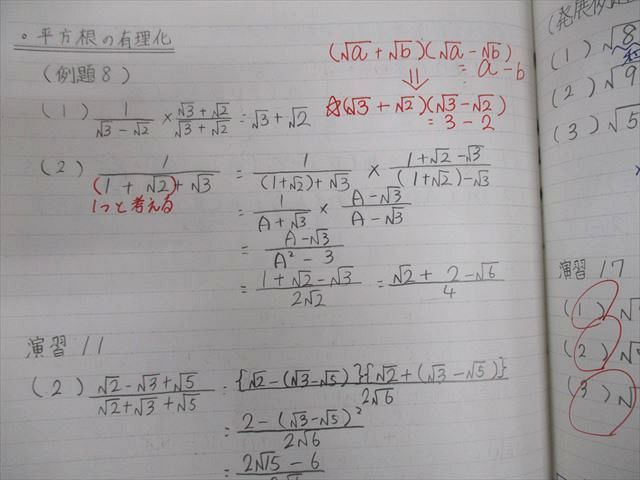 ・平方根の有理化
(例題8)
(√a + √b)(√a - √b)
= a - b
⇓
☆(√3 + √2)(√3 - √2)
= 3 - 2
(1) 1/(√3 - √2) × (√3 + √2)/(√3 + √2) = √3 + √2
(2) 1/((1 + √2) + √3) = 1/((1+√2) + √3) × (1+√2 - √3)/((1+√2) - √3)
1つと考える
= 1/(A + √3) × (A - √3)/(A - √3)
= (A - √3)/(A² - 3)
= (1 + √2 - √3)/(2√2) = (√2 + 2 - √6)/4
演習 11
(2) (√2 - √3 + √5)/(√2 + √3 + √5) = {√2 - (√3 - √5)}{√2 + (√3 - √5)}/(2√6)
= (2 - (√3 - √5)²)/(2√6)
= (2√15 - 6)/
(1) √8
(2) √9
(3) √5
演習 17
(1) √
(2) √
(3) √